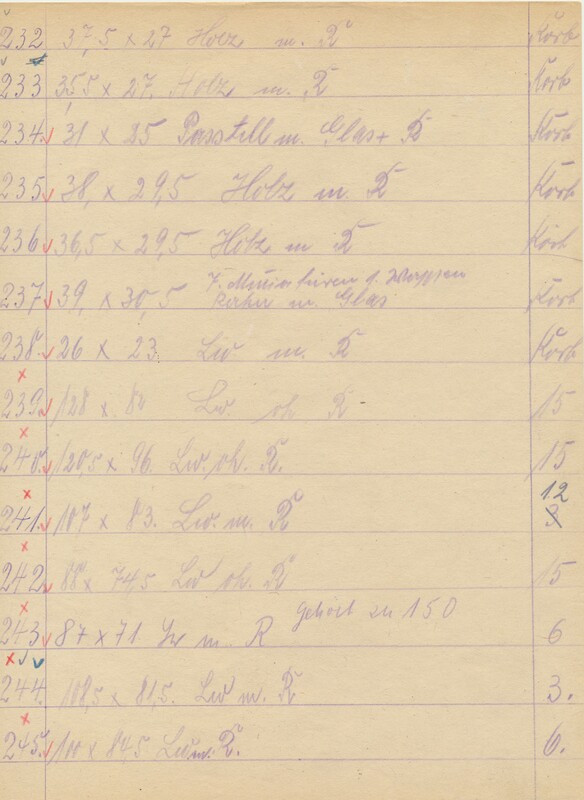 232 37,5 x 27 Holz m. R Korb
233 35,5 x 27. Holz m. R Korb
234. 31 x 25 Passtell m. Glas + R Korb
235 38, x 29,5 Holz m. R Korb
236 36,5 x 29,5 Holz m R Korb
7. Miniaturen d. Wappen
237 39, x 30,5 Rahm m. Glas Korb
238. 26 x 23. Lw m. R Korb
239. 128 x 82 Lw. oh R 15
240. 120,5 x 96. Lw. oh. R. 15
12
241. 107 x 83. Lw. m. R 3
242 88 x 74,5 Lw oh. R 15
gehört zu 150
243 87 x 71. Lw m.. R 6
244. 108,5 x 81,5. Lw m. R 3.
245. 100 x 84,5 Lw m. R. 6.